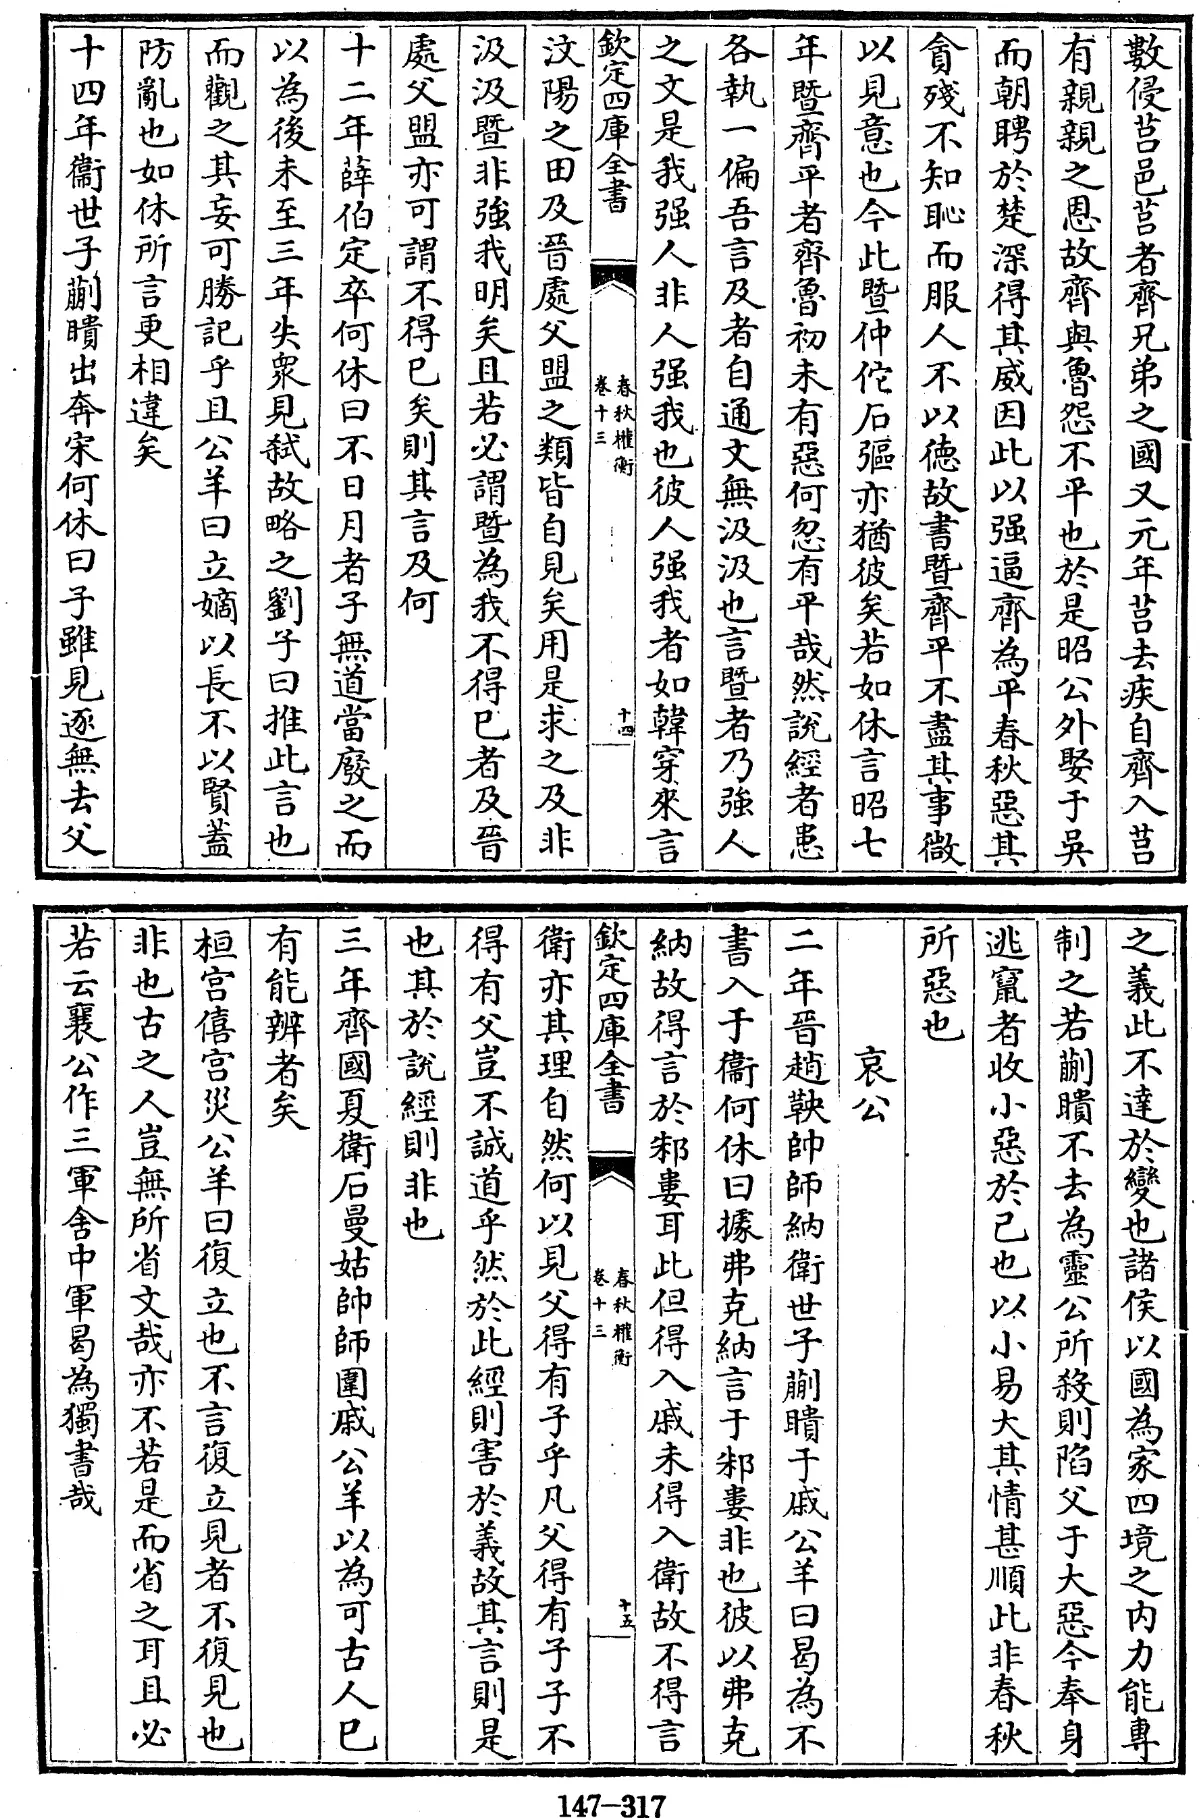 數侵莒邑莒者齊兄弟之國又元年莒去疾自齊入莒
有親親之恩故齊與魯怨不平也於是昭公外娶于吳
而朝聘於楚深得其威因此以强逼齊為平春秋惡其
貪殘不知恥而服人不以徳故書暨齊平不盡其事微
以見意也今此暨仲佗石彄亦猶彼矣若如休言昭七
年暨齊平者齊魯初未有惡何忽有平哉然説經者患
各執一偏吾言及者自通文無汲汲也言暨者乃強人
之文是我强人非人强我也彼人强我者如韓穿來言
欽定四庫全書
春秋權衡
卷十三
十四
汶陽之田及晉處父盟之類皆自見矣用是求之及非
汲汲暨非強我明矣且若必謂暨為我不得已者及晉
處父盟亦可謂不得已矣則其言及何
十二年薛伯定卒何休曰不日月者子無道當廢之而
以為後未至三年失衆見弑故略之劉子曰推此言也
而觀之其妄可勝記乎且公羊曰立嫡以長不以賢蓋
防亂也如休所言更相違矣
十四年衞世子蒯聵出奔宋何休曰子雖見逐無去父
之義此不達於變也諸侯以國為家四境之内力能専
制之若蒯聵不去為靈公所殺則陷父于大惡今奉身
逃竄者收小惡於己也以小易大其情甚順此非春秋
所惡也
哀公
二年晉趙鞅帥師納衛世子蒯聵于戚公羊曰曷為不
書入于衞何休曰據弗克納言于邾婁非也彼以弗克
納故得言於邾婁耳此但得入戚未得入衛故不得言
欽定四庫全書
春秋權衡
卷十三
十五
衛亦其理自然何以見父得有子乎凡父得有子子不
得有父豈不誠道乎然於此經則害於義故其言則是
也其於説經則非也
三年齊國夏衛石曼姑帥師圍戚公羊以為可古人已
有能辨者矣
桓宫僖宫災公羊曰復立也不言復立見者不復見也
非也古之人豈無所省文哉亦不若是而省之耳且必
若云襄公作三軍舍中軍曷為獨書哉
147-317